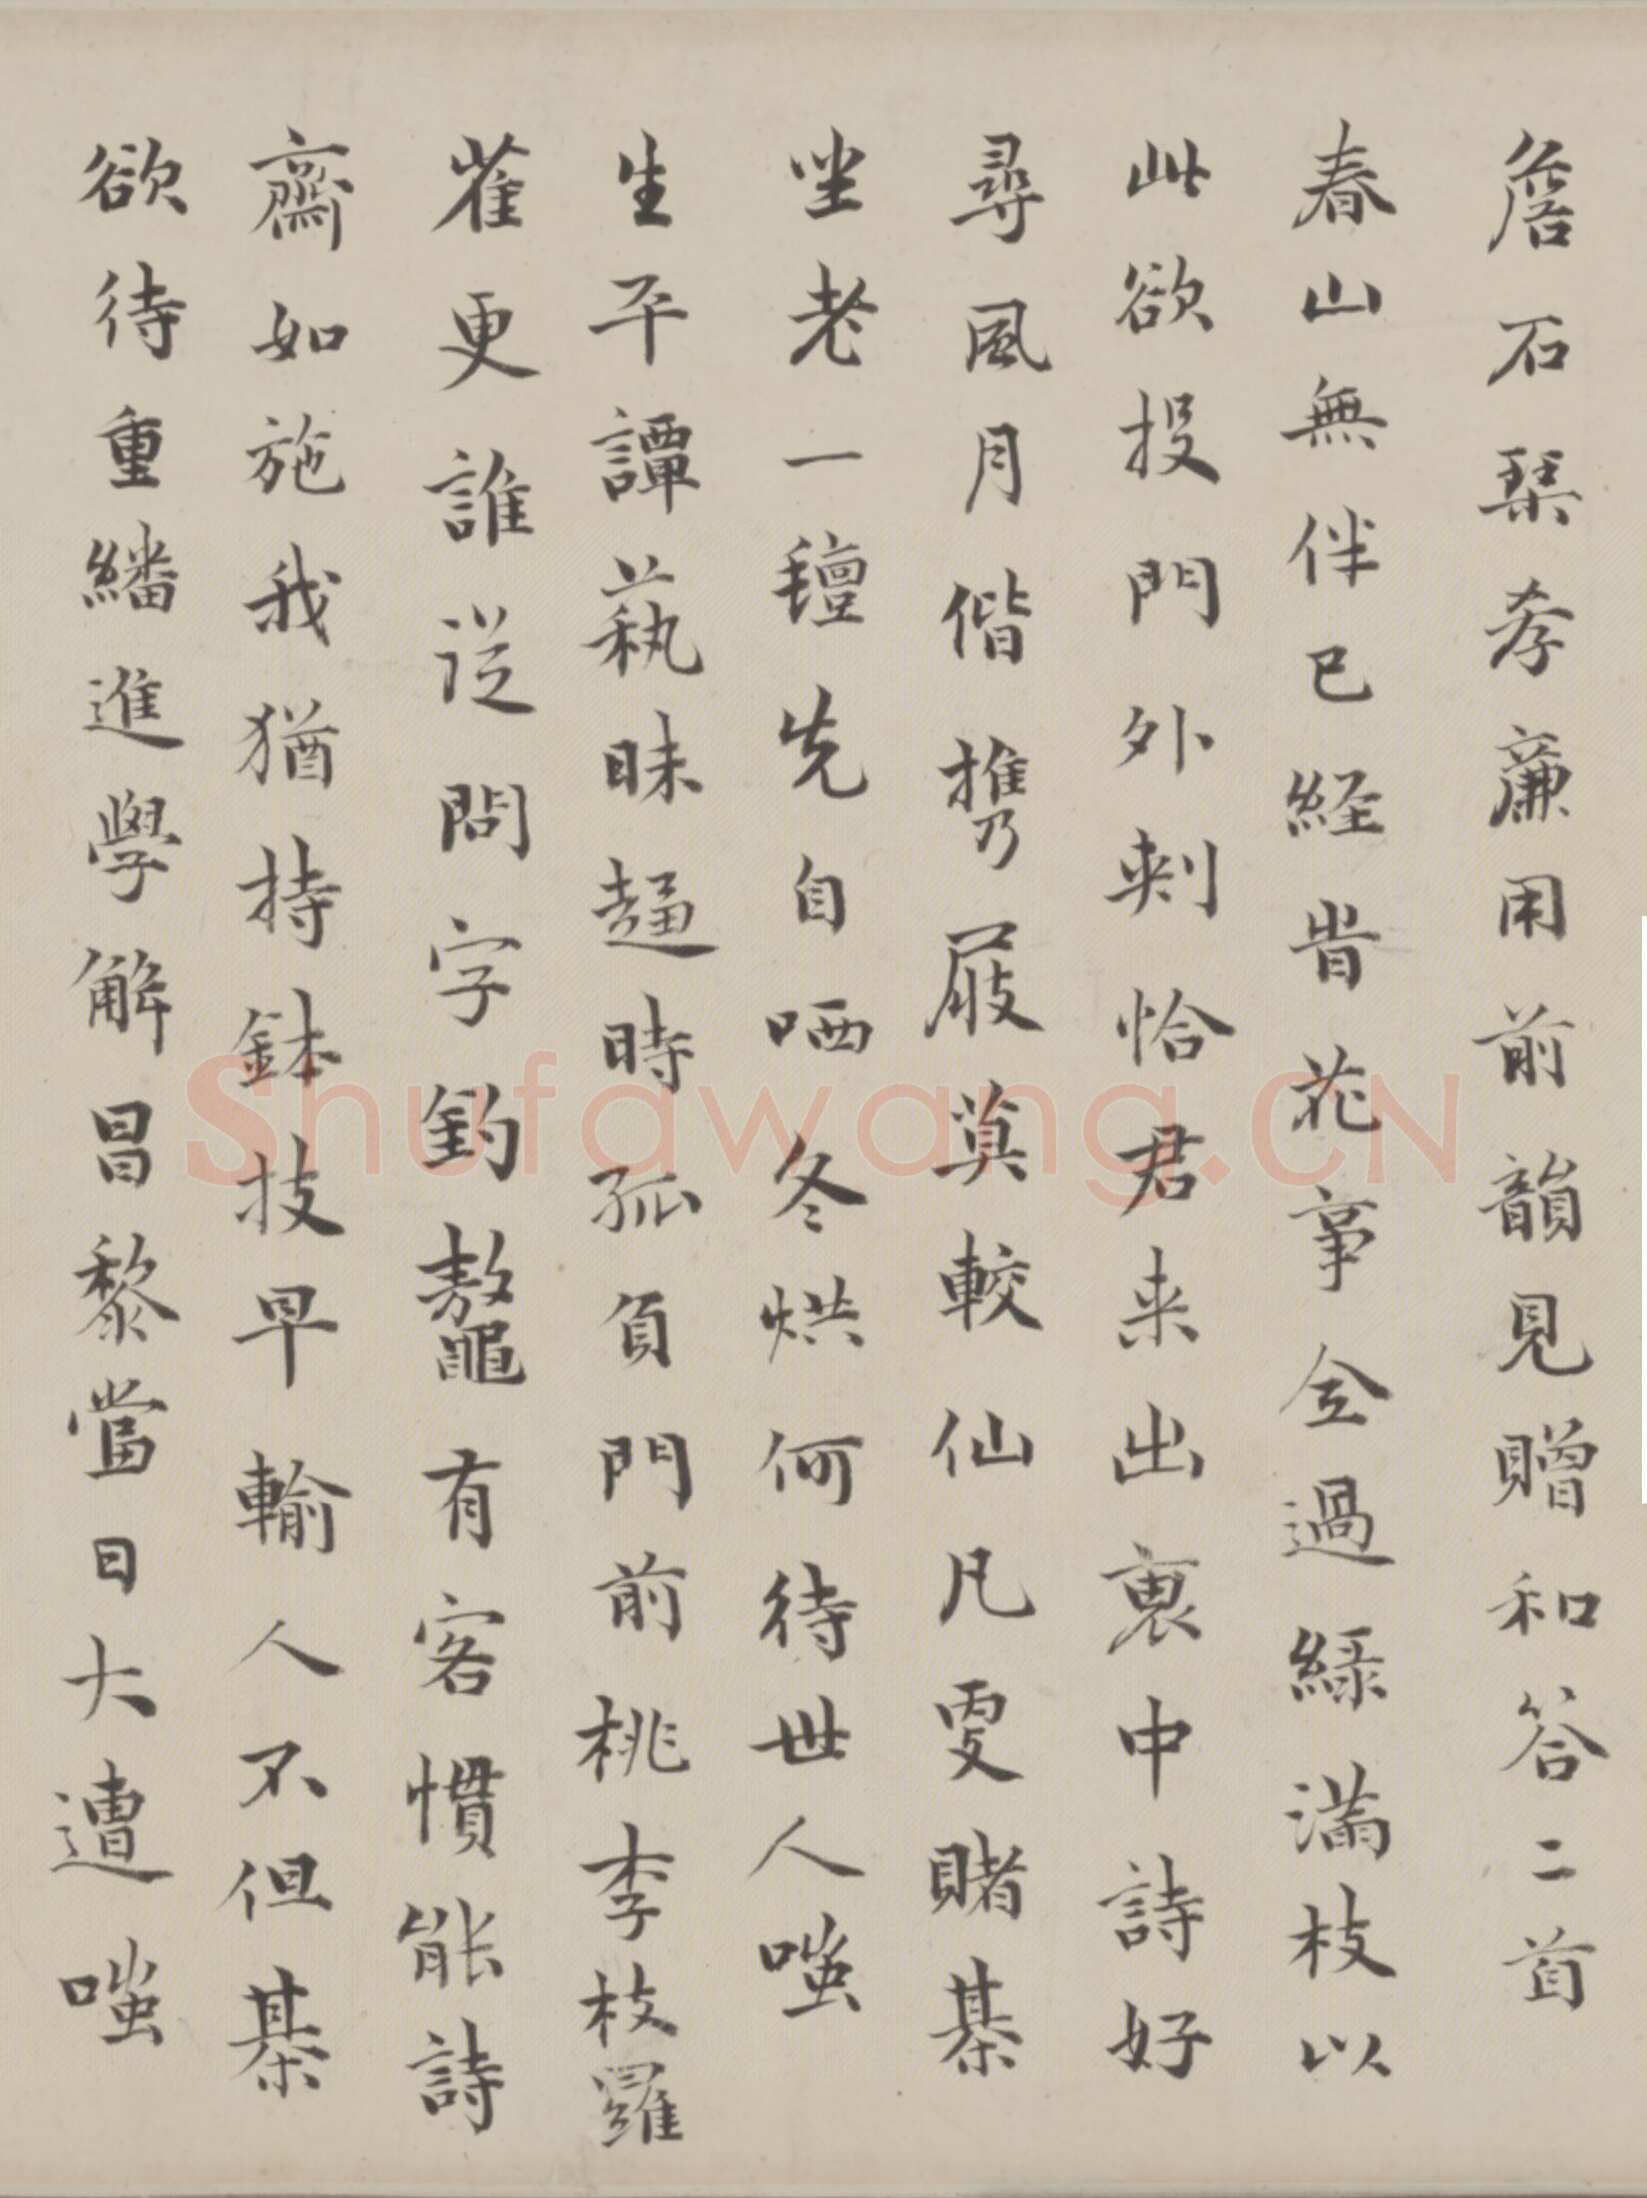 詹石琹孝廉用前韻見贈和答二首
春山無伴已経旹花事全過綠滿枝以
此欲投門外刺恰君来出裏中詩好
尋風月偕携屐莫較仙凡更賭棊
坐老一氊先自哂冬烘何待世人嗤
生平譚蓺昧趨時孤負門前桃李枝羅
雀更誰從問字釣鼇有客慣能詩
齋如施我猶持鉢技早輸人不但棊
欲待重繙進學解昌黎當日大遭嗤
Shufawang.CN